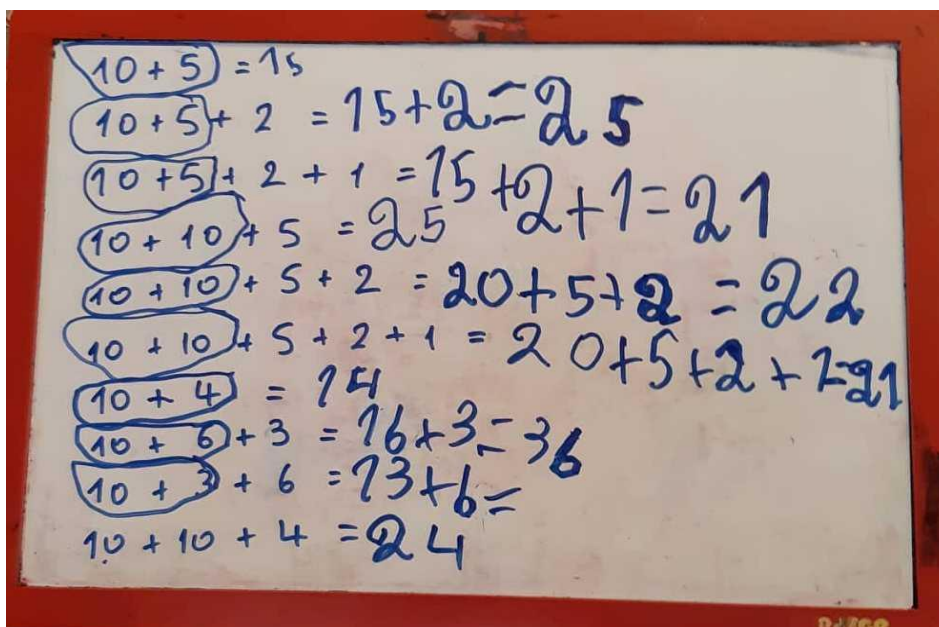 10 + 5 = 15
10 + 5 + 2 = 15 + 2 = 25
10 + 5 + 2 + 1 = 15 + 2 + 1 = 21
10 + 10 + 5 = 25
10 + 10 + 5 + 2 = 20 + 5 + 2 = 22
10 + 10 + 5 + 2 + 1 = 20 + 5 + 2 + 1 = 21
10 + 4 = 14
10 + 6 + 3 = 16 + 3 = 36
10 + 3 + 6 = 13 + 6 =
10 + 10 + 4 = 24